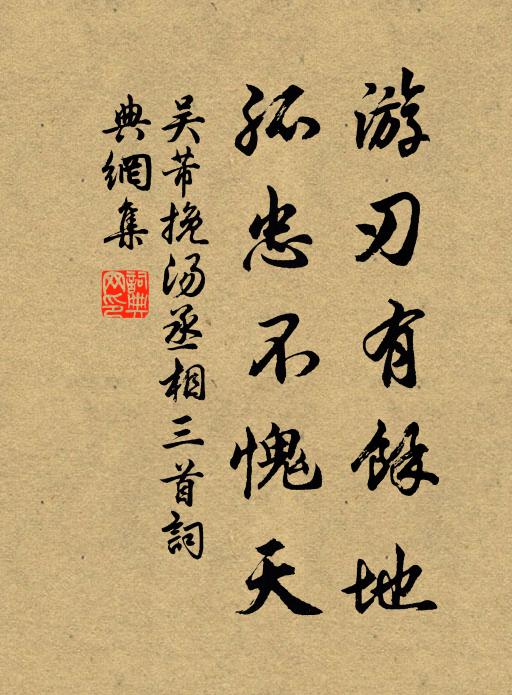 游刃有餘地
孤忠不愧天
吴芾挽汤丞相三首詞
典網集
詞典網印